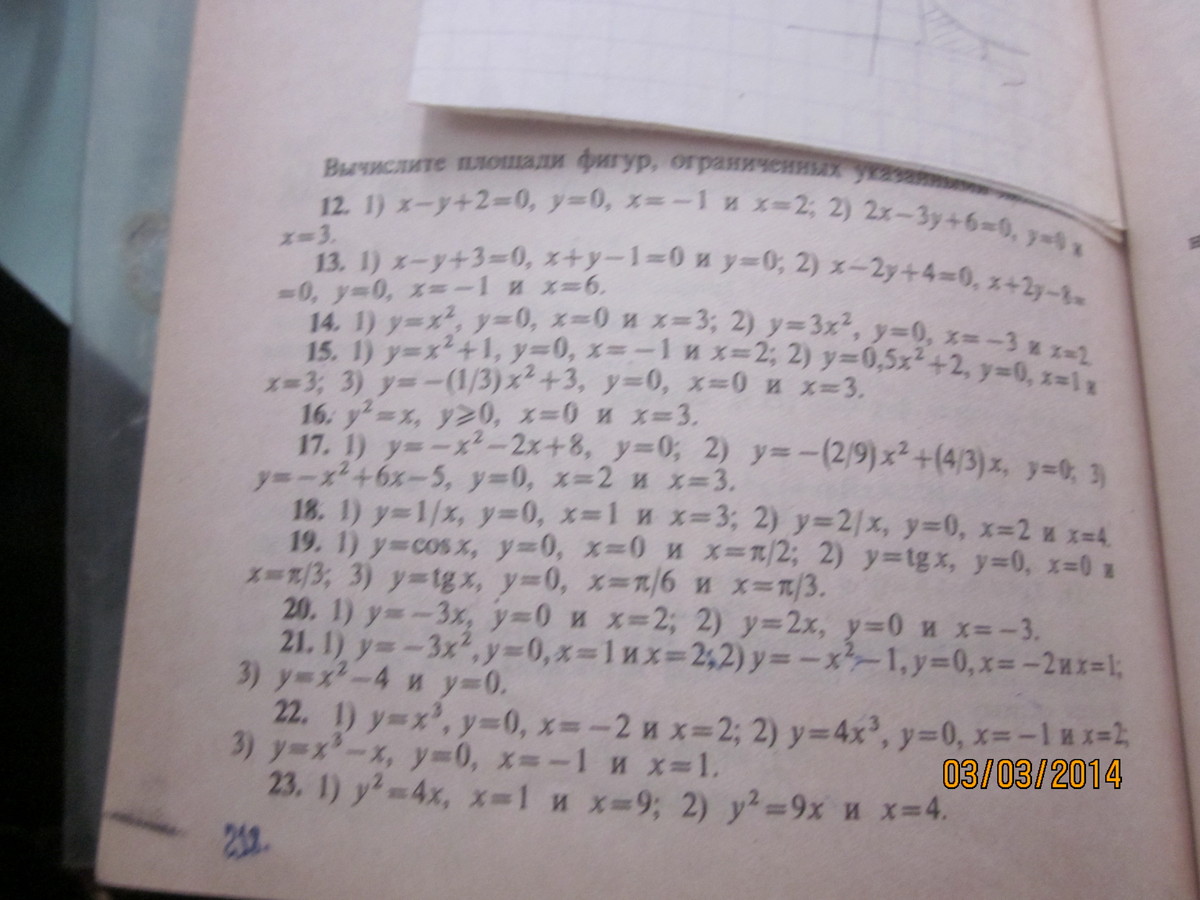 Вычислите площади фигур, ограниченных указанными
12. 1) x−y+2=0, y=0, x=−1 и x=2; 2) 2x−3y+6=0, y=0 и
x=3.
13. 1) x−y+3=0, x+y−1=0 и y=0; 2) x−2y+4=0, x+2y−8=
=0, y=0, x=−1 и x=6.
14. 1) y=x², y=0, x=0 и x=3; 2) y=3x², y=0, x=−3 и x=2
15. 1) y=x²+1, y=0, x=−1 и x=2; 2) y=0,5x²+2, y=0, x=1 и
x=3; 3) y=−(1/3)x²+3, y=0, x=0 и x=3.
16. y²=x, y⩾0, x=0 и x=3.
17. 1) y=−x²−2x+8, y=0; 2) y=−(2/9)x²+(4/3)x, y=0; 3)
y=−x²+6x−5, y=0, x=2 и x=3.
18. 1) y=1/x, y=0, x=1 и x=3; 2) y=2/x, y=0, x=2 и x=4.
19. 1) y=cos x, y=0, x=0 и x=π/2; 2) y=tg x, y=0, x=0 и
x=π/3; 3) y=tg x, y=0, x=π/6 и x=π/3.
20. 1) y=−3x, y=0 и x=2; 2) y=2x, y=0 и x=−3.
21. 1) y=−3x², y=0, x=1 и x=2; 2) y=−x²−1, y=0, x=−2 и x=1;
3) y=x²−4 и y=0.
22. 1) y=x³, y=0, x=−2 и x=2; 2) y=4x³, y=0, x=−1 и x=2;
3) y=x³−x, y=0, x=−1 и x=1.
23. 1) y²=4x, x=1 и x=9; 2) y²=9x и x=4.
03/03/2014